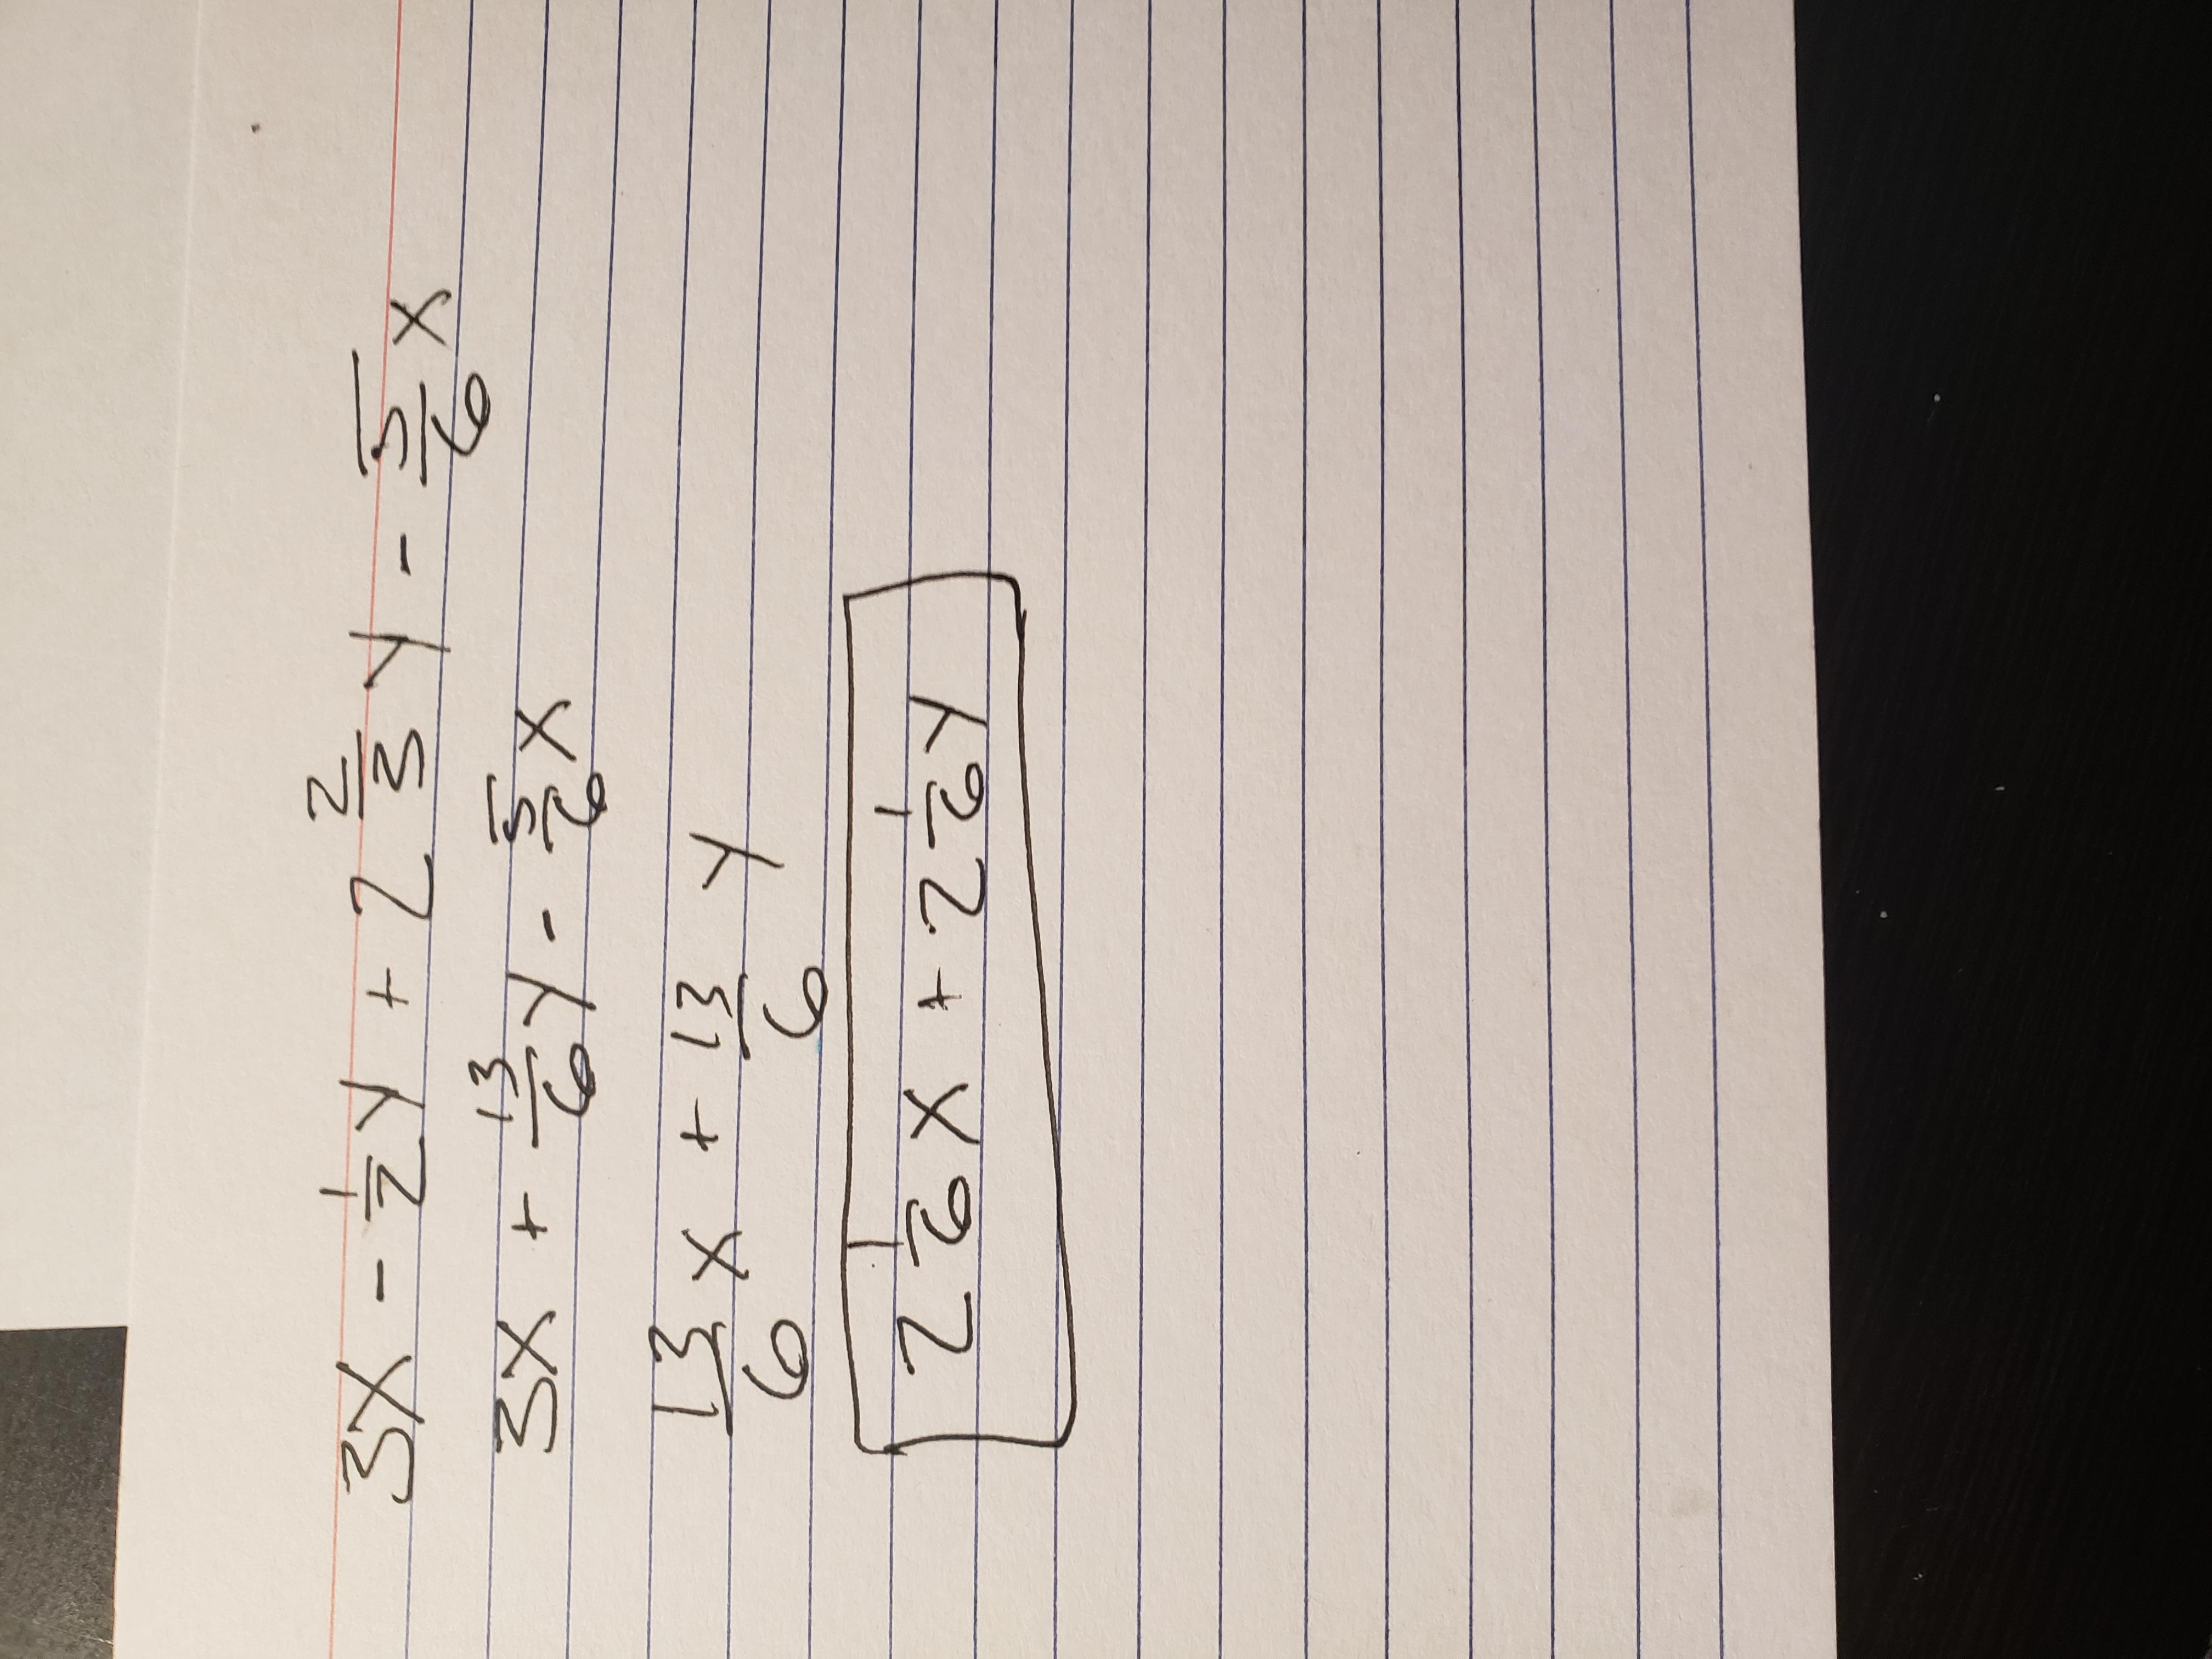 3x - 1/2 y + 2 2/3 y - 5/6 x
3x + 13/6 y - 5/6 x
13/6 x + 13/6 y
2 1/6 x + 2 1/6 y